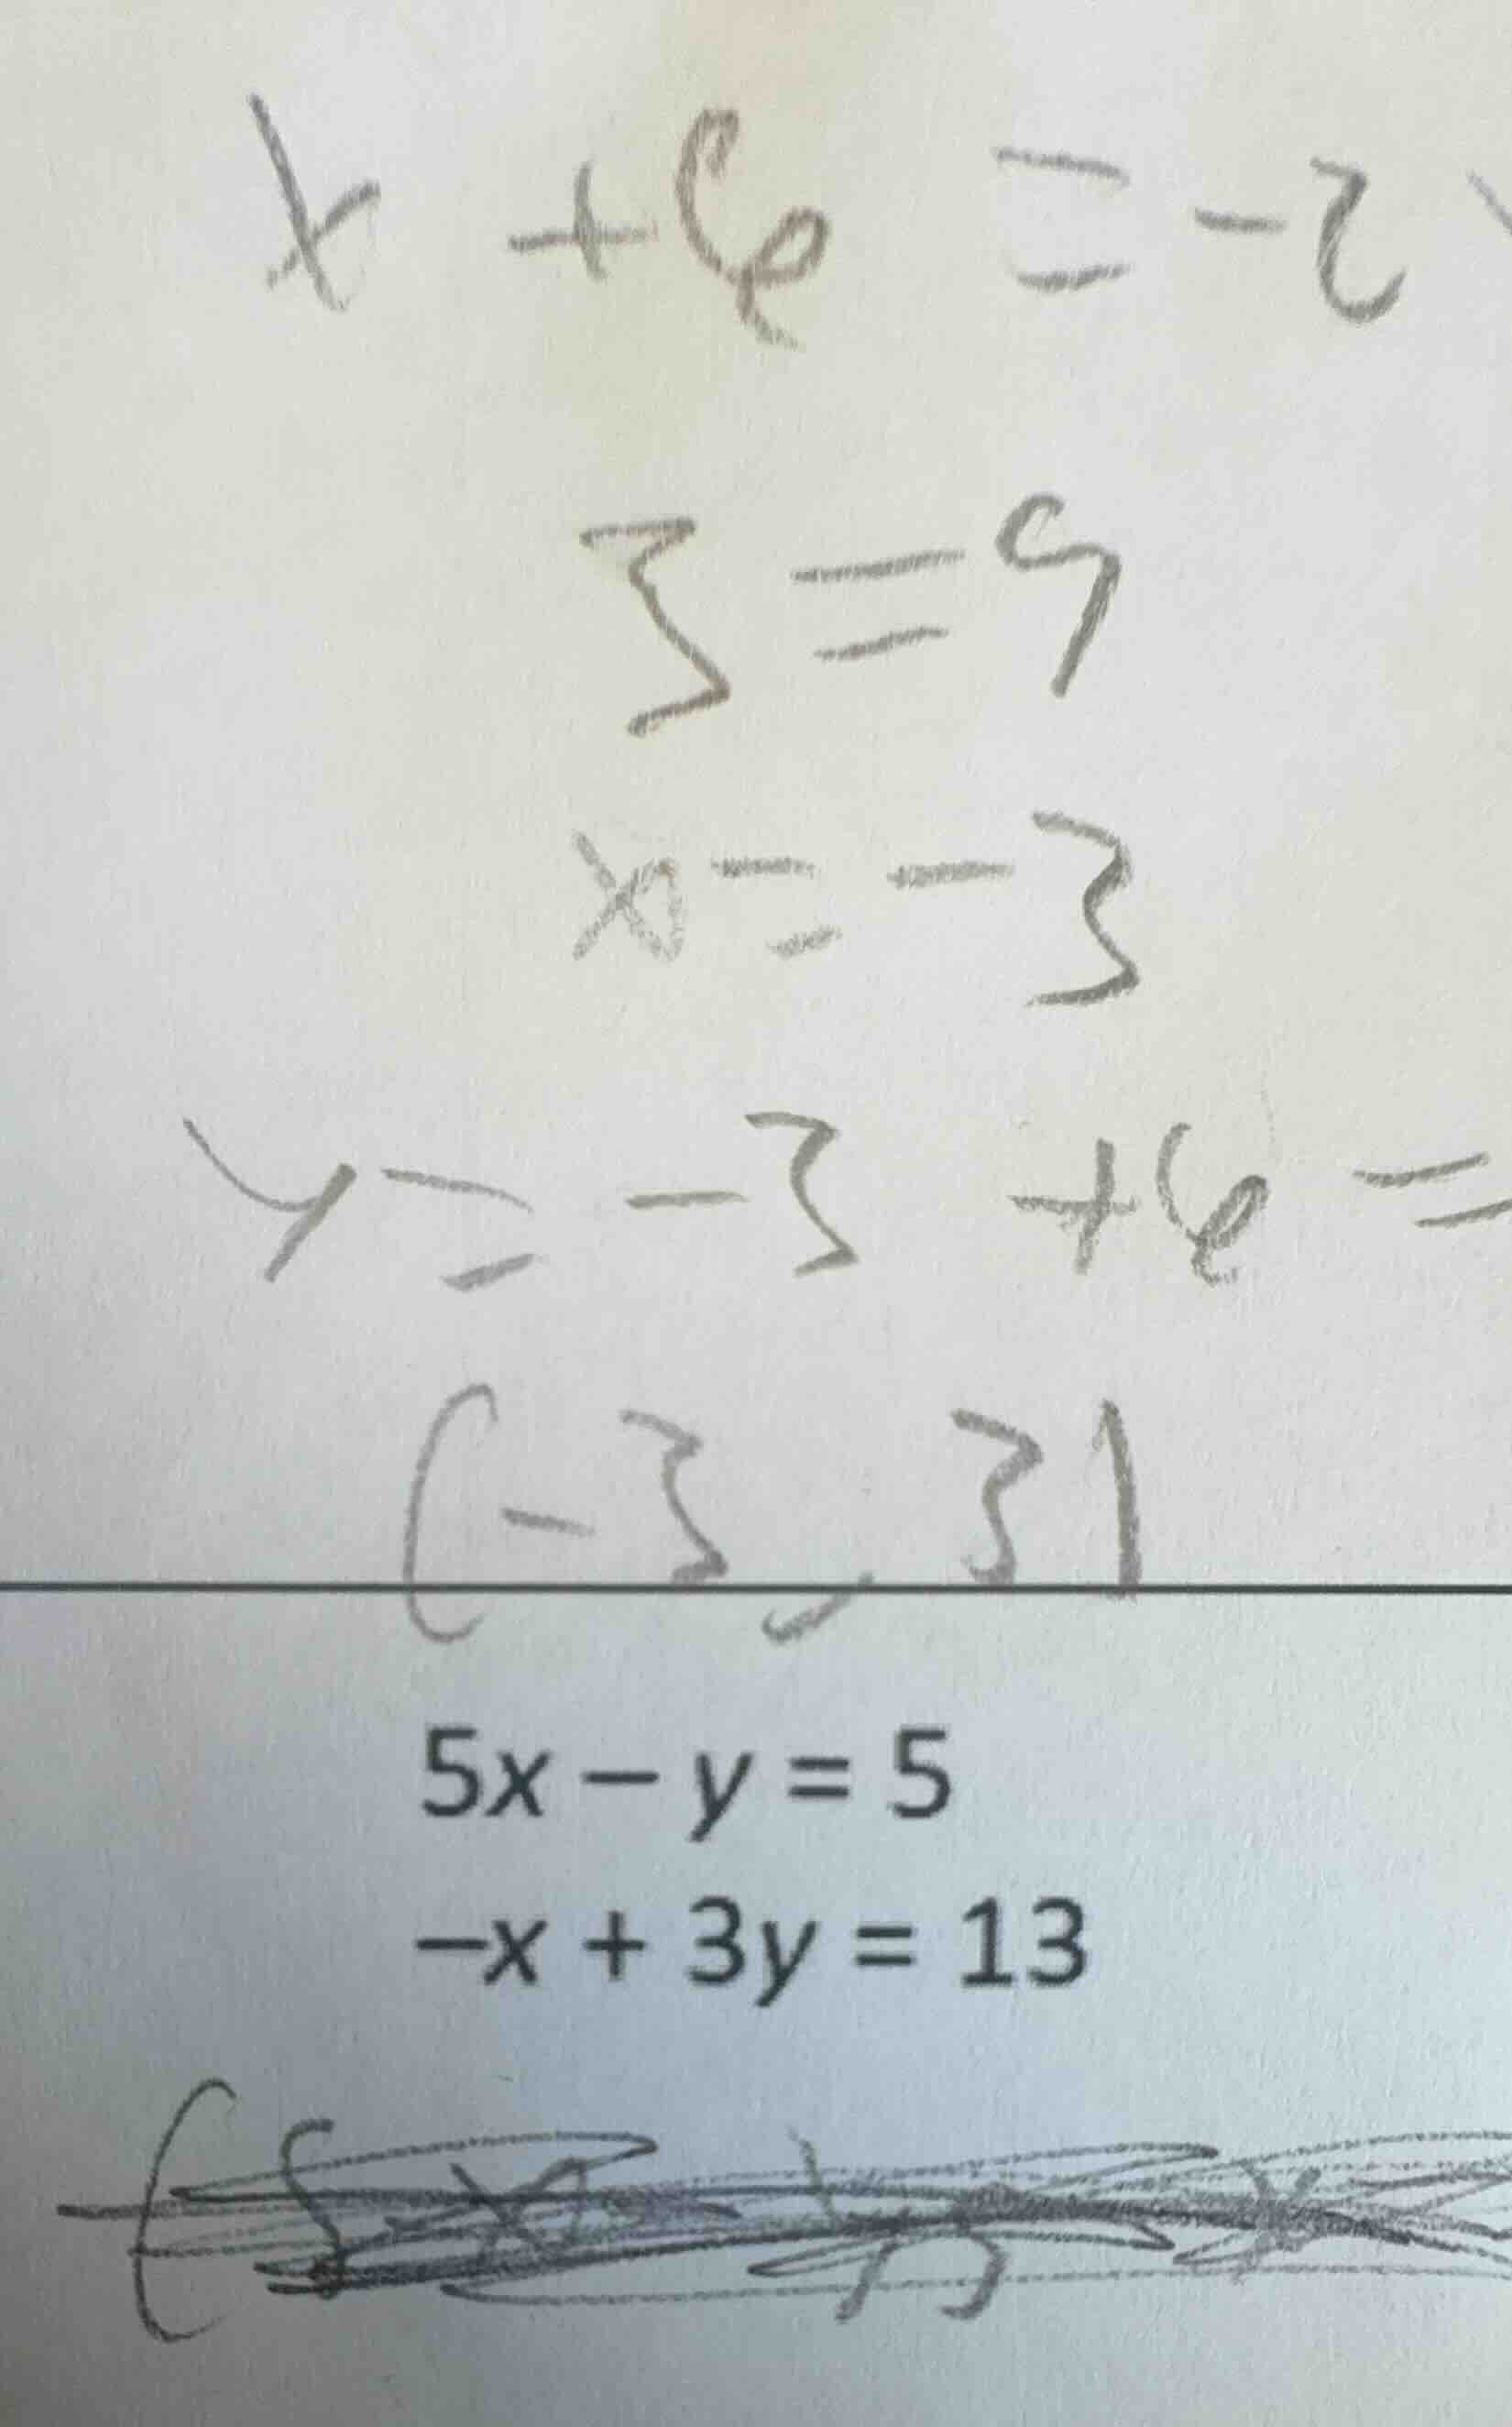 x + 6 = -2
3 = 9
x = -3
y = -3 + 6 =
(-3, 3)
5x – y = 5
–x + 3y = 13